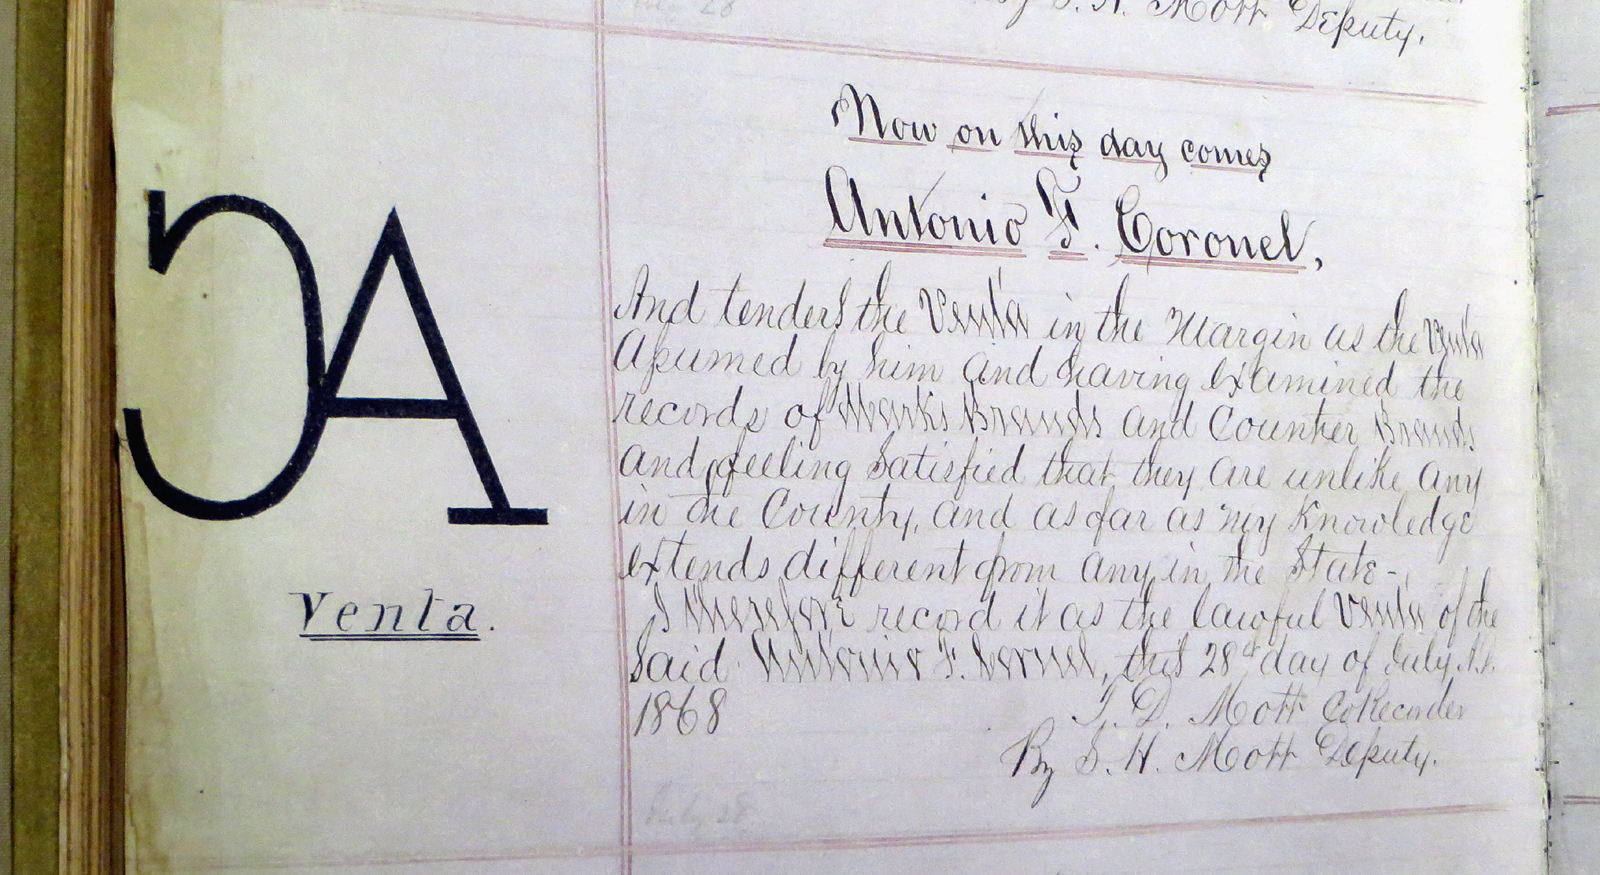 By S. H. Mott Deputy.
Now on this day comes
Antonio F. Coronel,
And tenders the Venta in the Margin as the Venta
Assumed by him and having examined the
records of Marks Brands and Counter Brands
and feeling satisfied that they are unlike any
in the County, and as far as my Knowledge
extends different from any in the State-
I therefore record it as the lawful Venta of the
Said Antonio F. Coronel, this 28th day of July A.D.
1868
T. D. Mott Co Recorder
By S. H. Mott Deputy.
CA
Venta.
July 28